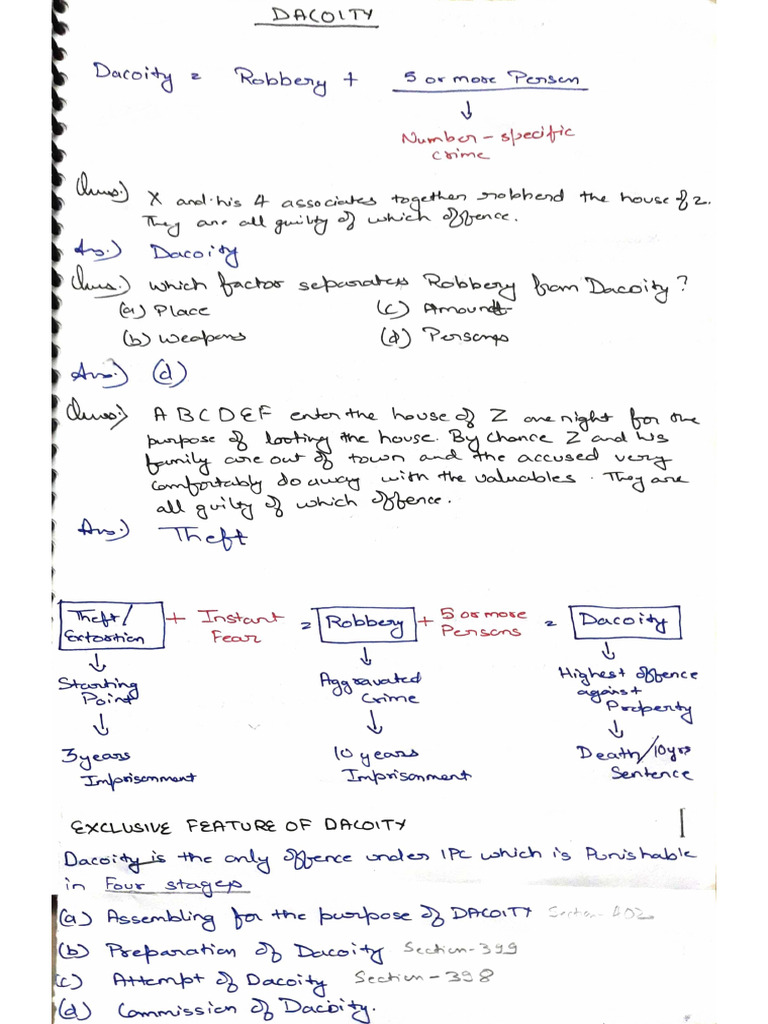 DACOITY
Dacoity = Robbery + 5 or more Person
↓
Number-specific
crime
Ques.) X and his 4 associates together robbend the house of Z.
They are all guilty of which offence.
Ans.) Dacoity
Ques.) which factor separates Robbery from Dacoity?
(a) Place (c) Amount
(b) Weapons (d) Persons
Ans.) (d)
Ques.) A B C D E F enter the house of Z one night for the
purpose of looting the house. By chance Z and his
family are out of town and the accused very
comfortably do away with the valuables. They are
all guilty of which offence.
Ans.) Theft
Theft/ Extortion + Instant Fear = Robbery + 5 or more Persons = Dacoity
↓ ↓ ↓
Starting Point Aggravated Crime Highest offence against Property
↓ ↓ ↓
3 years Imprisonment 10 years Imprisonment Death/10yrs Sentence
EXCLUSIVE FEATURE OF DACOITY
Dacoity is the only offence under IPC which is Punishable
in Four stages
(a) Assembling for the purpose of DACOITY Section-402
(b) Preparation of Dacoity Section-399
(c) Attempt of Dacoity Section-398
(d) Commission of Dacoity.